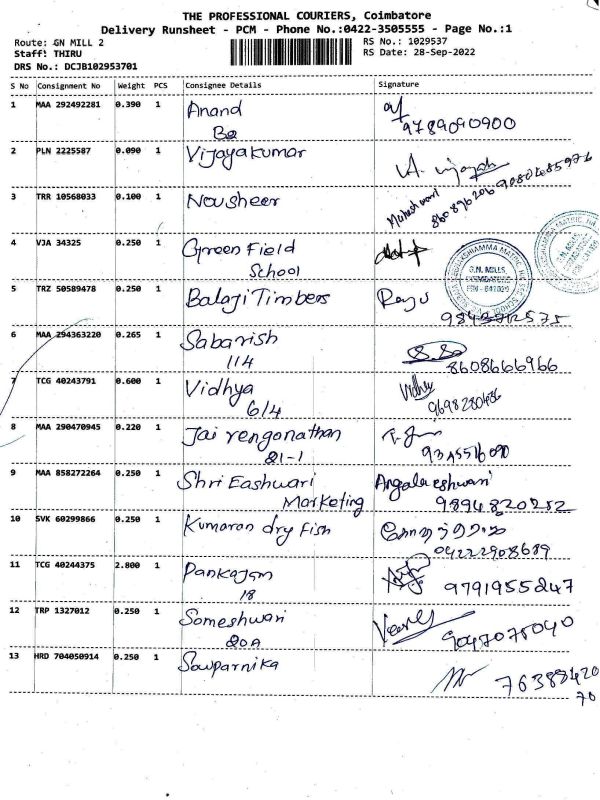 THE PROFESSIONAL COURIERS, Coimbatore
Delivery Runsheet - PCM - Phone No.:0422-3505555 - Page No.:1
Route: GN MILL 2
RS No.: 1029537
Staff: THIRU
RS Date: 28-Sep-2022
DRS No.: DCJB102953701
S No Consignment No Weight PCS Consignee Details Signature
1 MAA 292492281 0.390 1 Anand
9789090900
2 PLN 2225587 0.090 1 Vijayakumar
3 TRR 10568033 0.100 1 Nousheer
4 VJA 34325 0.250 1 Green Field
School
G.N. MILLS,
5 TRZ 50589478 0.250 1 Balaji Timbers
6 MAA 294363220 0.265 1 Sabarish
114 8608666966
7 TCG 40243791 0.600 1 Vidhya Vidhya
6/4
8 MAA 290470945 0.220 1 Jai rengonathan
21-1
9 MAA 858272264 0.250 1 Shri Eashwari Angala eshwari
Marketing 9894820252
10 SVK 60299866 0.250 1 Kumaran dry Fish
04222908689
11 TCG 40244375 2.800 1 Pankajam
18 9791955247
12 TRP 1327012 0.250 1 Someshwari
20A
13 HRD 704050914 0.250 1 Sowparnika
76388420
70